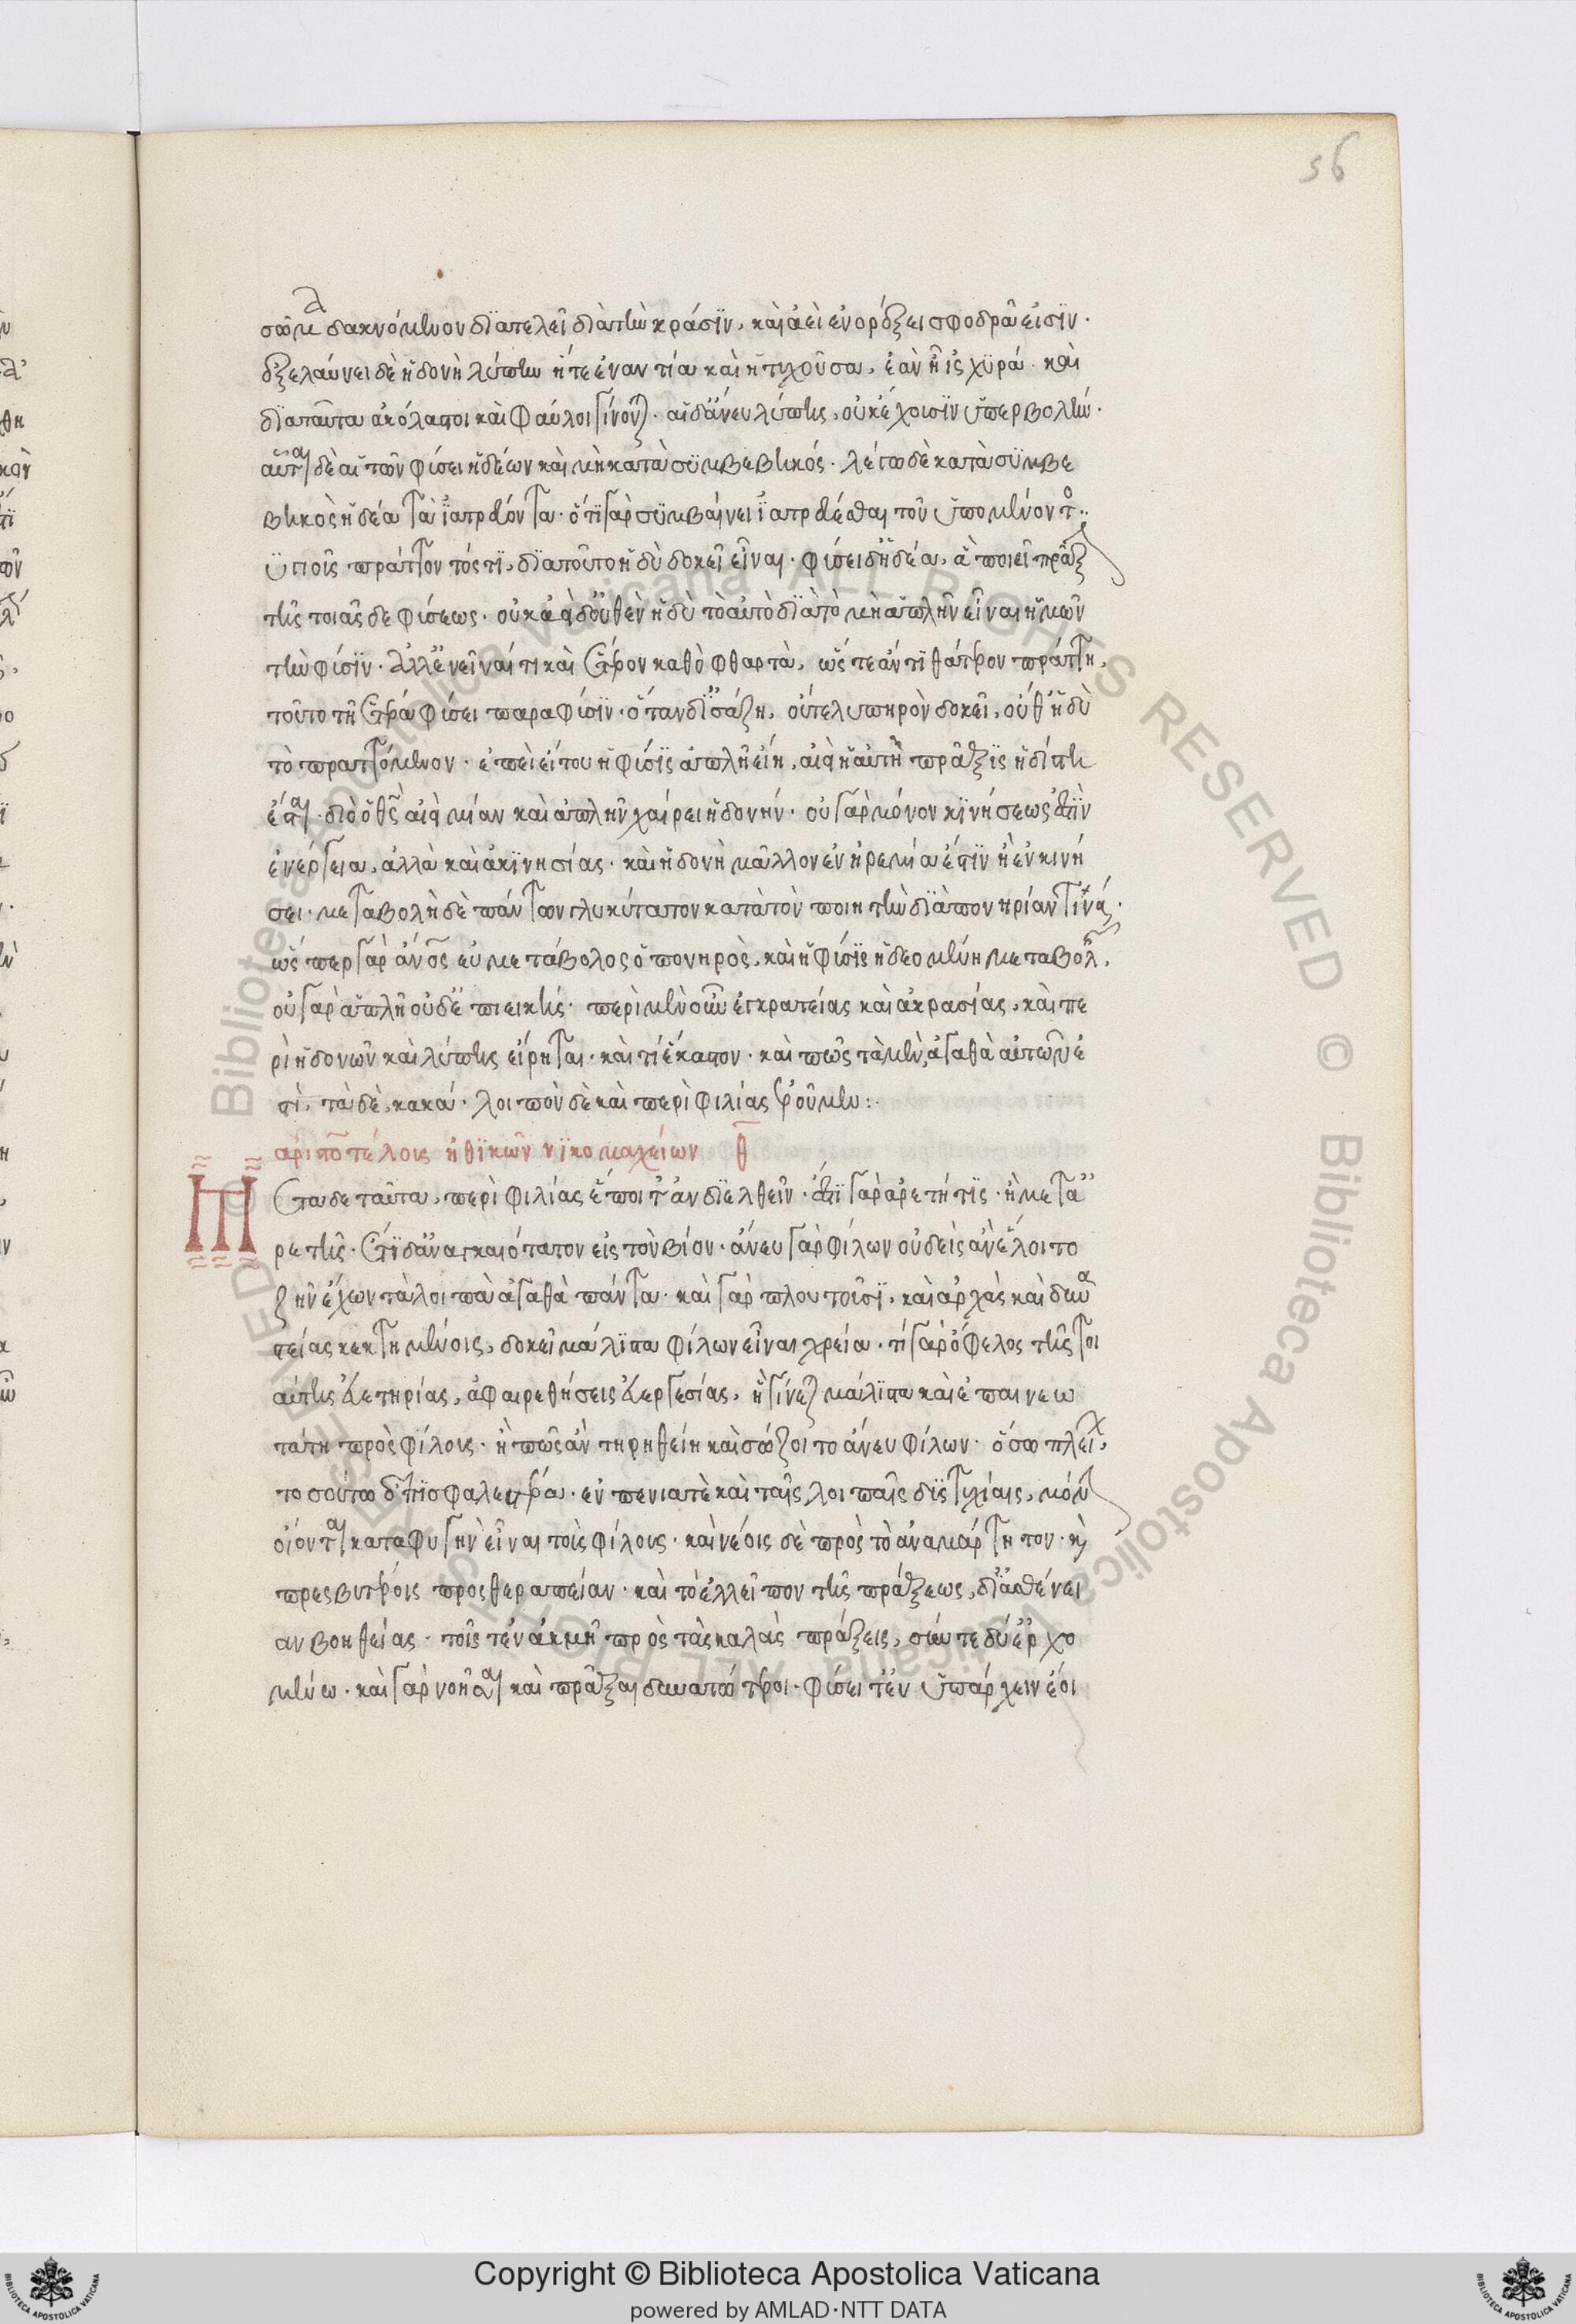 56
σῶμα δακνόμενον διατελεῖ διὰ τὴν κράσιν, καὶ ἀεὶ ἐν ὀρέξει σφοδρᾶ εἰσιν·
ἐξελαύνει δὲ ἡδονὴ λύπην ἥτε ἐναντία καὶ ἡ τυχοῦσα, ἐὰν ῇ ἰσχυρά· καὶ
διαταῦτα ἀκόλαστοι καὶ φαῦλοι γίνονται· αἱ δἄνευ λύπης, οὐκ ἔχουσιν ὑπερβολήν·
αὗται δὲ αἱ τῶν φύσει ἡδέων καὶ μὴ κατὰ συμβεβηκός· λέγω δὲ κατὰ συμβε
βηκὸς ἡδέα τὰ ἰατρεύοντα· ὅτι γὰρ συμβαίνει ἰατρεύεσθαι τοῦ ὑπομένοντος
ὑγιοῦς πράττοντός τι, διατοῦτο ἡδὺ δοκεῖ εἶναι· φύσει δἡδέα, ἃ ποιεῖ πρᾶξιν
τῆς τοιᾶσδε φύσεως· οὐκ ἀεὶ δοὐθὲν ἡδὺ τὸ αὐτὸ διὰ τὸ μὴ ἁπλὴν εἶναι ἡμῶν
τὴν φύσιν· ἀλλἐνεῖναί τι καὶ ἕτερον καθὸ φθαρτὰ, ὥστε ἄν τι θάτερον πράττη,
τοῦτο τῆ ἑτέρα φύσει παραφύσιν· ὅταν δἰσάζη, οὔτε λυπηρὸν δοκεῖ, οὔθἡδὺ
τὸ πραττόμενον· ἐπεὶ εἴ του ἡ φύσις ἁπλῆ εἴη, αἰεὶ ἡ αὐτὴ πρᾶξις ἡδίστη
ἔσται· διὸ ὁ θεὸς αἰεὶ μίαν καὶ ἁπλὴν χαίρει ἡδονήν· οὐ γὰρ μόνον κινήσεως ἐστὶν
ἐνέργεια, ἀλλὰ καὶ ἀκινησίας· καὶ ἡδονὴ μᾶλλον ἐν ἠρεμία ἐστὶν ἢ ἐν κινή
σει· μεταβολὴ δὲ πάντων γλυκύτατον κατὰ τὸν ποιητὴν διὰ πονηρίαν τινά·
ὥσπερ γὰρ ἄνθρωπος εὐμετάβολος ὁ πονηρὸς, καὶ ἡ φύσις ἡ δεομένη μεταβολῆς,
οὐ γὰρ ἁπλῆ οὐδἐπιεικής· περὶ μὲν οὖν ἐγκρατείας καὶ ἀκρασίας, καὶ πε
ρὶ ἡδονῶν καὶ λύπης εἴρηται· καὶ τί ἕκαστον· καὶ πῶς τὰ μὲν ἀγαθὰ αὐτῶν ἐ
στὶ, τὰ δὲ, κακά· λοιπὸν δὲ καὶ περὶ φιλίας ἐροῦμεν:
ἀριστοτέλους ἠθικῶν νικομαχείων θ
Μετα δε ταῦτα, περὶ φιλίας ἕποιτἂν διελθεῖν· ἔστι γὰρ ἀρετή τις· ἢ μετἀ
ρετῆς· ἔτι δἀναγκαιότατον εἰς τὸν βίον· ἄνευ γὰρ φίλων οὐδεὶς ἂν ἕλοιτο
ζῆν ἔχων τὰ λοιπὰ ἀγαθὰ πάντα· καὶ γὰρ πλουτοῦσι, καὶ ἀρχὰς καὶ δυνα
στείας κεκτημένοις, δοκεῖ μάλιστα φίλων εἶναι χρεία· τί γὰρ ὄφελος τῆς τοι
αύτης εὐετηρίας, ἀφαιρεθήσεις εὐεργεσίας, ἣ γίνεται μάλιστα καὶ ἐπαινεω
τάτη πρὸς φίλους· ἢ πῶς ἂν τηρηθείη καὶ σώζοιτο ἄνευ φίλων· ὅσω πλείων,
τοσούτω δἐπισφαλεστέρα· ἐν πενία τὲ καὶ ταῖς λοιπαῖς δυστυχίαις, μόνην
οἴονται καταφυγὴν εἶναι τοὺς φίλους· καὶ νέοις δὲ πρὸς τὸ ἀναμάρτητον· καὶ
πρεσβυτέροις προς θεραπείαν· καὶ τὸ ἐλλεῖπον τῆς πράξεως, διἀσθένει
αν βοηθείας· τοῖς τἐν ἀκμῆ πρὸς τὰς καλὰς πράξεις, σύν τε δύἐρχο
μένω· καὶ γὰρ νοῆσαι καὶ πρᾶξαι δυνατώτεροι· φύσει τἐνυπάρχειν ἔοι